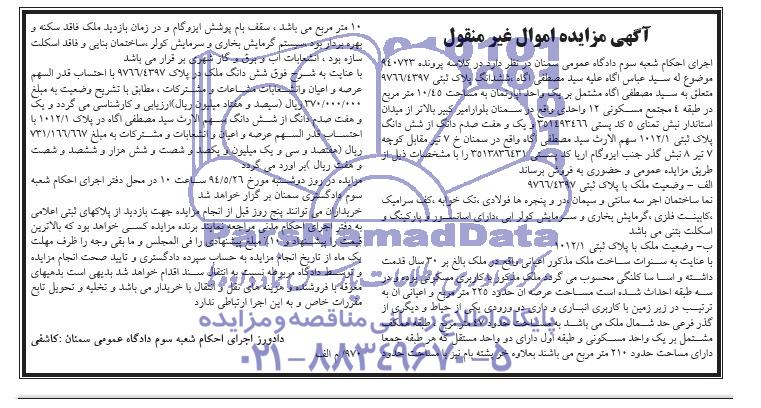 آگهی مزایده اموال غیر منقول
اجرای احکام شعبه سوم دادگاه عمومی سمنان در نظر دارد در کلاسه پرونده ۹۴۰۷۲۳
موضوع له سید عباس آگاه علیه سید مصطفی آگاه ،ششدانگ پلاک ثبتی ۹۷۶۶/۴۳۹۷
متعلق به سید مصطفی آگاه مشتمل بر یک واحد آپارتمان به مساحت ۱۰/۴۵ متر مربع
در طبقه ۴ مجتمع مسکونی ۱۲ واحدی واقع در سمنان بلوارامیر کبیر بالاتر از میدان
استاندار نبش تمنای ۵ کد پستی ۳۵۱۴۹۳۴۶۶ و یک و هفت صدم دانگ از شش دانگ
پلاک ثبتی ۱۰۱۲/۱ سهم الارث سید مصطفی آگاه واقع در سمنان خ ۷ تیر مقابل کوچه
۷ تیر ۸ نبش گذر جنب ایزوگام آریا کد پستی ۳۵۱۳۸۳۶۴۳۱ را با مشخصات ذیل از
طریق مزایده عمومی و حضوری به فروش برساند
الف - وضعیت ملک با پلاک ثبتی ۹۷۶۶/۴۳۹۷
نما ساختمان آجر سه سانتی و سیمان ،در و پنجره ها فولادی ،تک خوابه ،کف سرامیک
،کابینت فلزی ،گرمایش بخاری و سرمایش کولر آبی ،دارای آسانسور و پارکینگ و
اسکلت بتنی می باشد
ب- وضعیت ملک با پلاک ثبتی ۱۰۱۲/۱
با عنایت به سنوات ساخت ملک مذکور اعیانی واقع در ملک بالغ بر ۳۰ سال قدمت
داشته و اساسا کلنگی محسوب می گردد ملک مذکور با کاربری مسکونی بوده و در
سه طبقه احداث شده است مساحت عرصه آن حدود ۲۲۵ متر مربع و اعیانی آن به
ترتیب در زیر زمین با کاربری انباری و داری دو ورودی یکی از حیاط و دیگری از
گذر فرعی حد شمال ملک می باشد به مساحت حدود ۴۷ متر مربع ،طبقه همکف
مشتمل بر یک واحد مسکونی و طبقه اول دارای دو واحد مستقل که هر طبقه جمعا
دارای مساحت حدود ۲۱۰ متر مربع می باشند بعلاوه خر پشته بام نیز با مساحت حدود
۱۰ متر مربع می باشد ، سقف بام پوشش ایزوگام و در زمان بازدید ملک فاقد سکنه و
بهره بردار بود ،سیستم گرمایش بخاری و سرمایش کولر ،ساختمان بنایی و فاقد اسکلت
سازه بود ، انشعابات آب و برق و گاز شهری بر قرار می باشد
با عنایت به شرح فوق شش دانگ ملک در پلاک ۹۷۶۶/۴۳۹۷ با احتساب قدر السهم
عرصه و اعیان وانشعابات مشاعات و مشترکات ، مطابق با تشریح وضعیت به مبلغ
۳۷۰/۰۰۰/۰۰۰ ریال (سیصد و هفتاد میلیون ریال)ارزیابی و کارشناسی می گردد و یک
و هفت صدم دانگ از شش دانگ سهم الارث سید مصطفی آگاه در پلاک ۱۰۱۲/۱ با
احتساب قدر السهم عرصه و اعیان و انشعابات و مشترکات به مبلغ ۷۳۱/۱۶۶/۶۶۷
ریال (هفتصد و سی و یک میلیون و یکصد و شصت و شش هزار و ششصد و شصت
و هفت ریال )بر آورد می گردد
مزایده در روز دوشنبه مورخ ۹۴/۵/۲۶ ساعت ۱۰ در محل دفتر اجرای احکام شعبه
سوم دادگستری سمنان بر گزار خواهد شد
خریداران می توانند پنج روز قبل از انجام مزایده جهت بازدید از پلاکهای ثبتی اعلامی
به دفتر اجرای احکام مدنی مراجعه نمایند برنده مزایده کسی خواهد بود که بالاترین
قیمت را پیشنهاد و ۱۰٪ مبلغ پیشنهادی را فی المجلس و ما بقی وجه را ظرف مهلت
یک ماه از تاریخ انجام مزایده به حساب سپرده دادگستری و تایید صحت انجام مزایده
و توسط دادگاه مربوطه نسبت به انتقال سند اقدام خواهد شد بدیهی است بدهیهای
معرفه با فروشنده و هزینه های نقل و انتقال با خریدار می باشد و تخلیه و تحویل تابع
مقررات خاص و به این اجرا ارتباطی ندارد
دادورز اجرای احکام شعبه سوم دادگاه عمومی سمنان :کاشفی
۹۷۰/ م الف
ParsNamadData
پایگاه اطلاع رسانی مناقصه و مزایده
۰۲۱-۸۸۳۴۹۶۷۰-۵